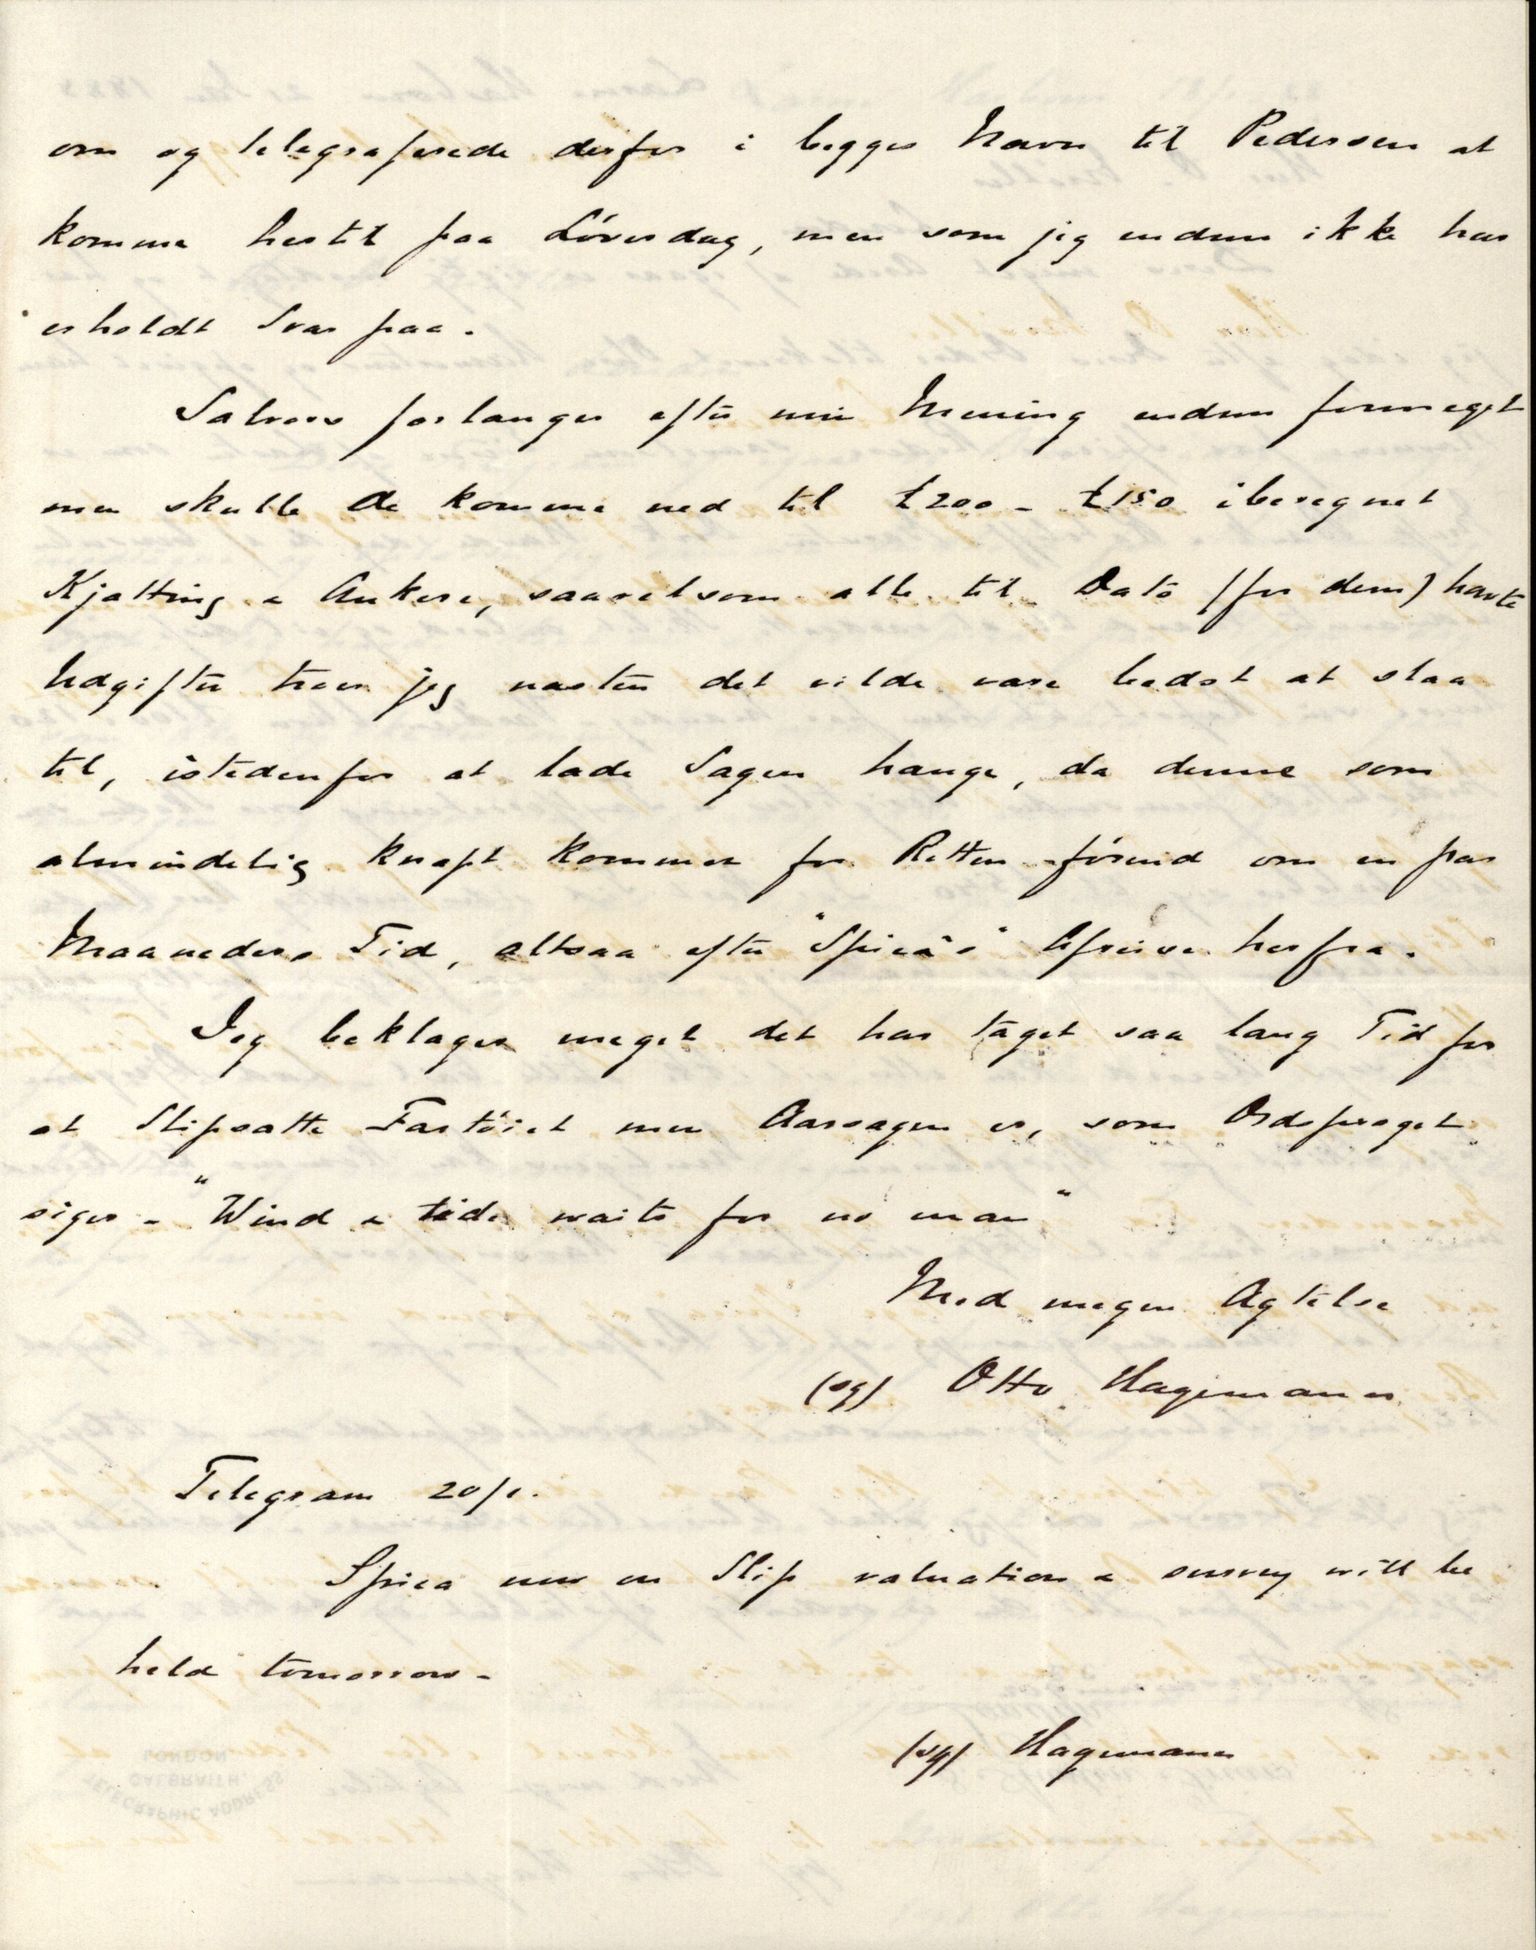 om og telegraferede derfor i begges Navn til Pedersen at
komme hertil paa Löverdag, men som jeg endnu ikke har
erholdt Svar paa.
Salvors forlanger efter min Mening endnu formeget
men skulde de komme ned til £200 - £150 iberegnet
Kjætting & Ankere, saavelsom alle til Dato (for dem) havte
Udgifter troer jeg næsten det vilde være bedst at slaa
til, istedenfor at lade Sagen hænge, da denne som
almindelig knapt kommer for Retten förend om en par
Maaneders Tid, altsaa efter "Spica's" Afreise herfra.
Jeg beklager meget det har taget saa lang Tid for
at Slipsætte Fartöiet men Aarsagen er, som Ordsproget
siger - "Wind & tide waits for no man"
Med megen Agtelse
(sg) Otto Hagemann
Telegram 20/1.
Spica now on Slip valuation & survey will be
held tomorrow -
(sg) Hagemann
LONDON
GALBRAITH,
TELEGRAPHIC ADDRESS